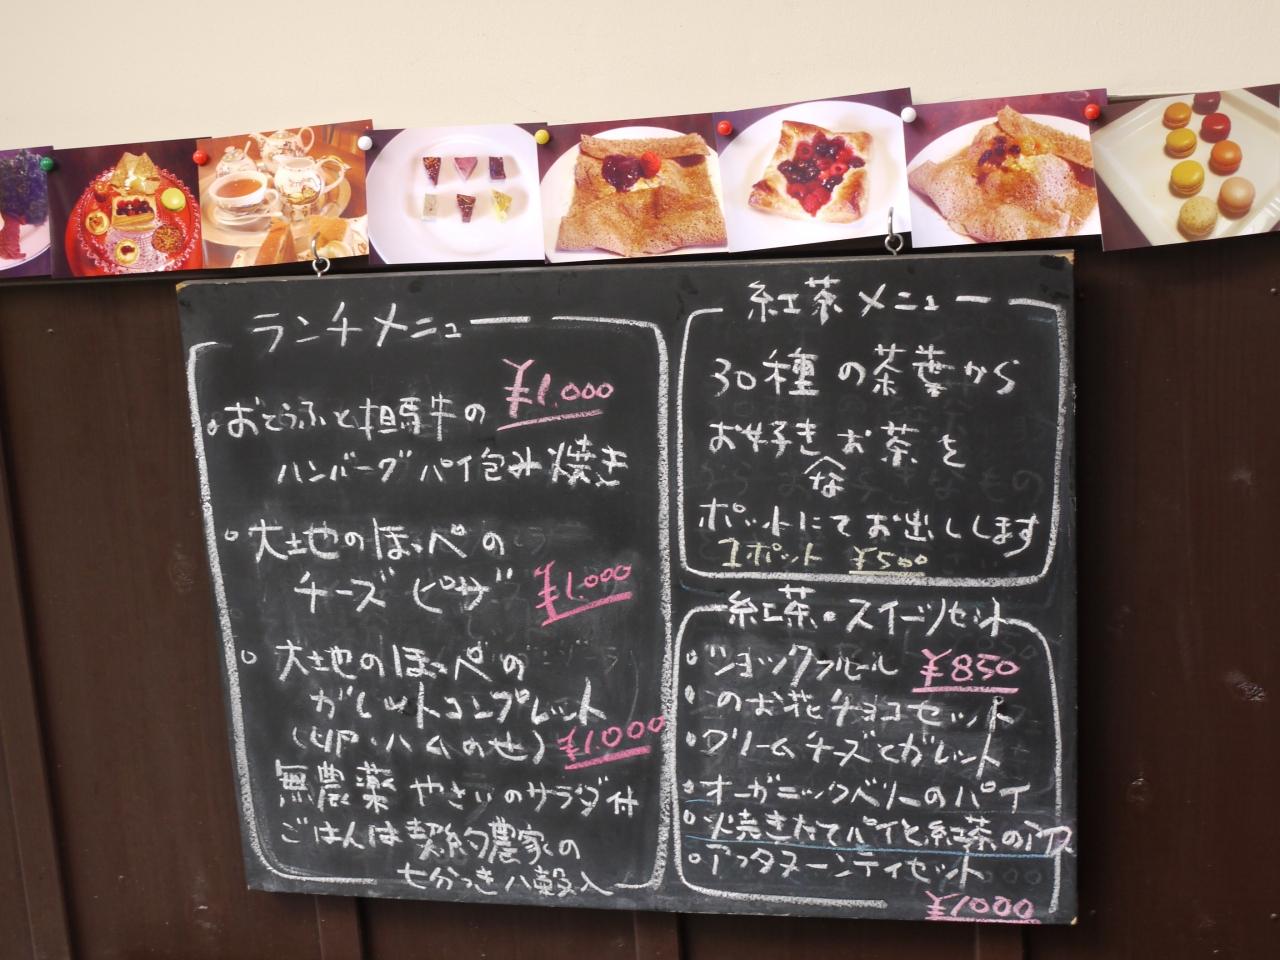 ランチメニュー
¥1.000
おとうふと担馬牛の
ハンバーグパイ包み焼き
大地のほっぺの
チーズピザ ¥1.000
大地のほっぺの
ガレットコンプレット
(卵・ハムの也) ¥1.000
無農薬やさいのサラダ付
ごはんは契約農家の
七分づき八穀入
紅茶メニュー
30種の茶葉から
お好きなお茶を
ポットにてお出しします
1ポット ¥500
紅茶・スイーツセット
¥850
のお花チョコセット
クリームチーズとガレット
オーガニックベリーのパイ
焼きたてパイと紅茶のアイス
アフタヌーンティセット
¥1000